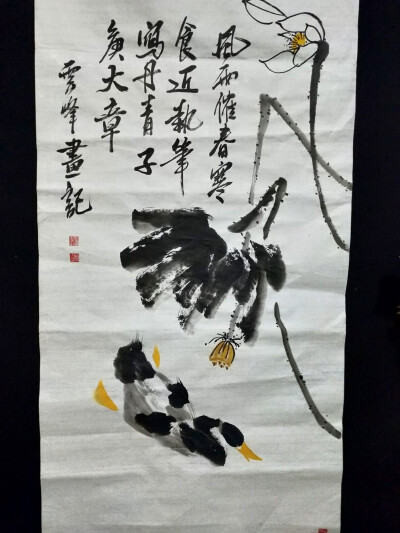 風雨催春寒
食近執筆
寫丹青子
庚大章
雲峰畫記